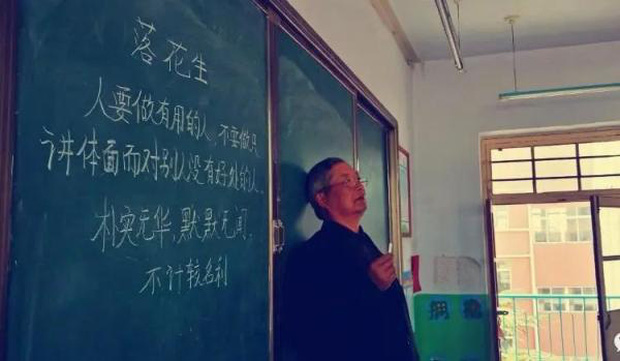 落花生
人要做有用的人,不要做只
讲体面而对别人没有好处的人。
朴实无华,默默无闻,
不计较名利